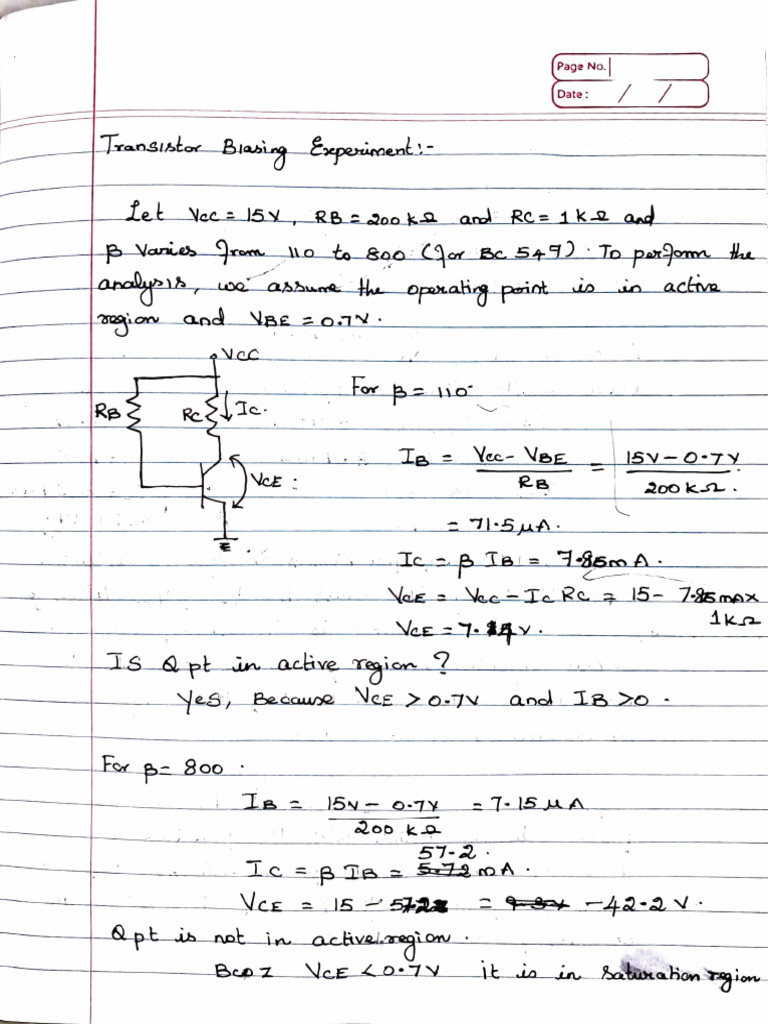 Page No.
Date: / /
Transistor Biasing Experiment:-
Let VCC = 15V, RB = 200 kΩ and RC = 1 kΩ and
β varies from 110 to 800 (for BC 547). To perform the
analysis, we assume the operating point is in active
region and VBE = 0.7V.
VCC
For β = 110
RB RC IC.
VCE :
IB = VCC - VBE / RB = 15V - 0.7V / 200 kΩ.
= 71.5 μA.
IC = β IB = 7.85 mA.
VCE = VCC - IC RC = 15 - 7.85 mA x 1kΩ
VCE = 7. V.
Is Q pt in active region ?
Yes, Because VCE > 0.7V and IB > 0.
For β = 800.
IB = 15V - 0.7V / 200 kΩ = 7.15 μA
57.2.
IC = β IB = 5.72 mA.
VCE = 15 - 572 = -42.2 V.
Q pt is not in active region.
Bcoz VCE < 0.7V it is in saturation region